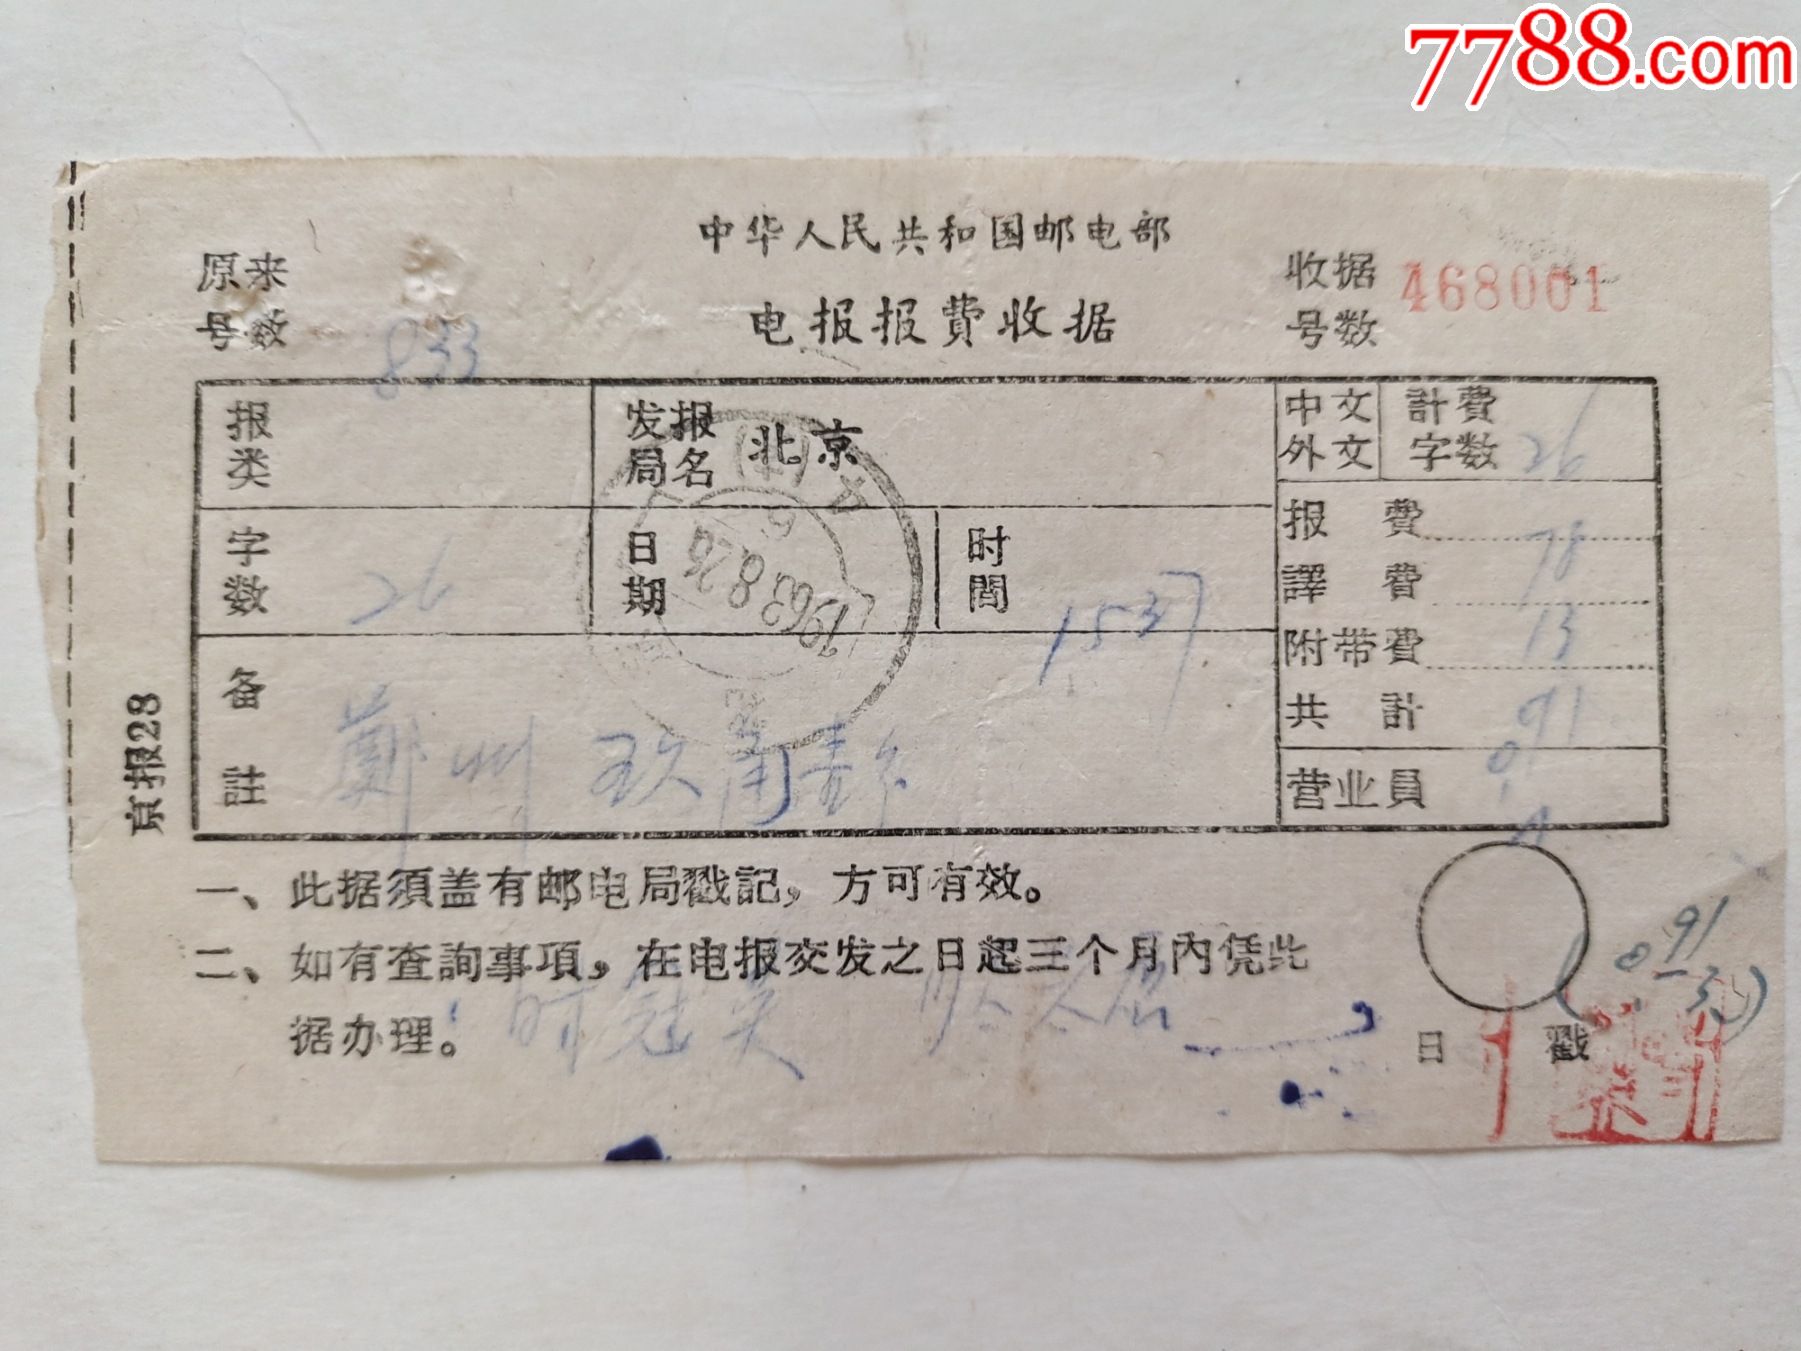 7788.com
中华人民共和国邮电部
电报报費收据
原来号数 833
收据号数 468001
报类
发报局名 北京
中文外文
計費字数 26
字数 26
日期
1963.8.26
时間 1537
报費 78
譯費
附带費 13
共計 0.91
营业員
备註 鄭州 玖角壹分
京报28
一、此据須盖有邮电局戳記，方可有效。
二、如有查詢事項，在电报交发之日起三个月內凭此
据办理。
日戳
0.91